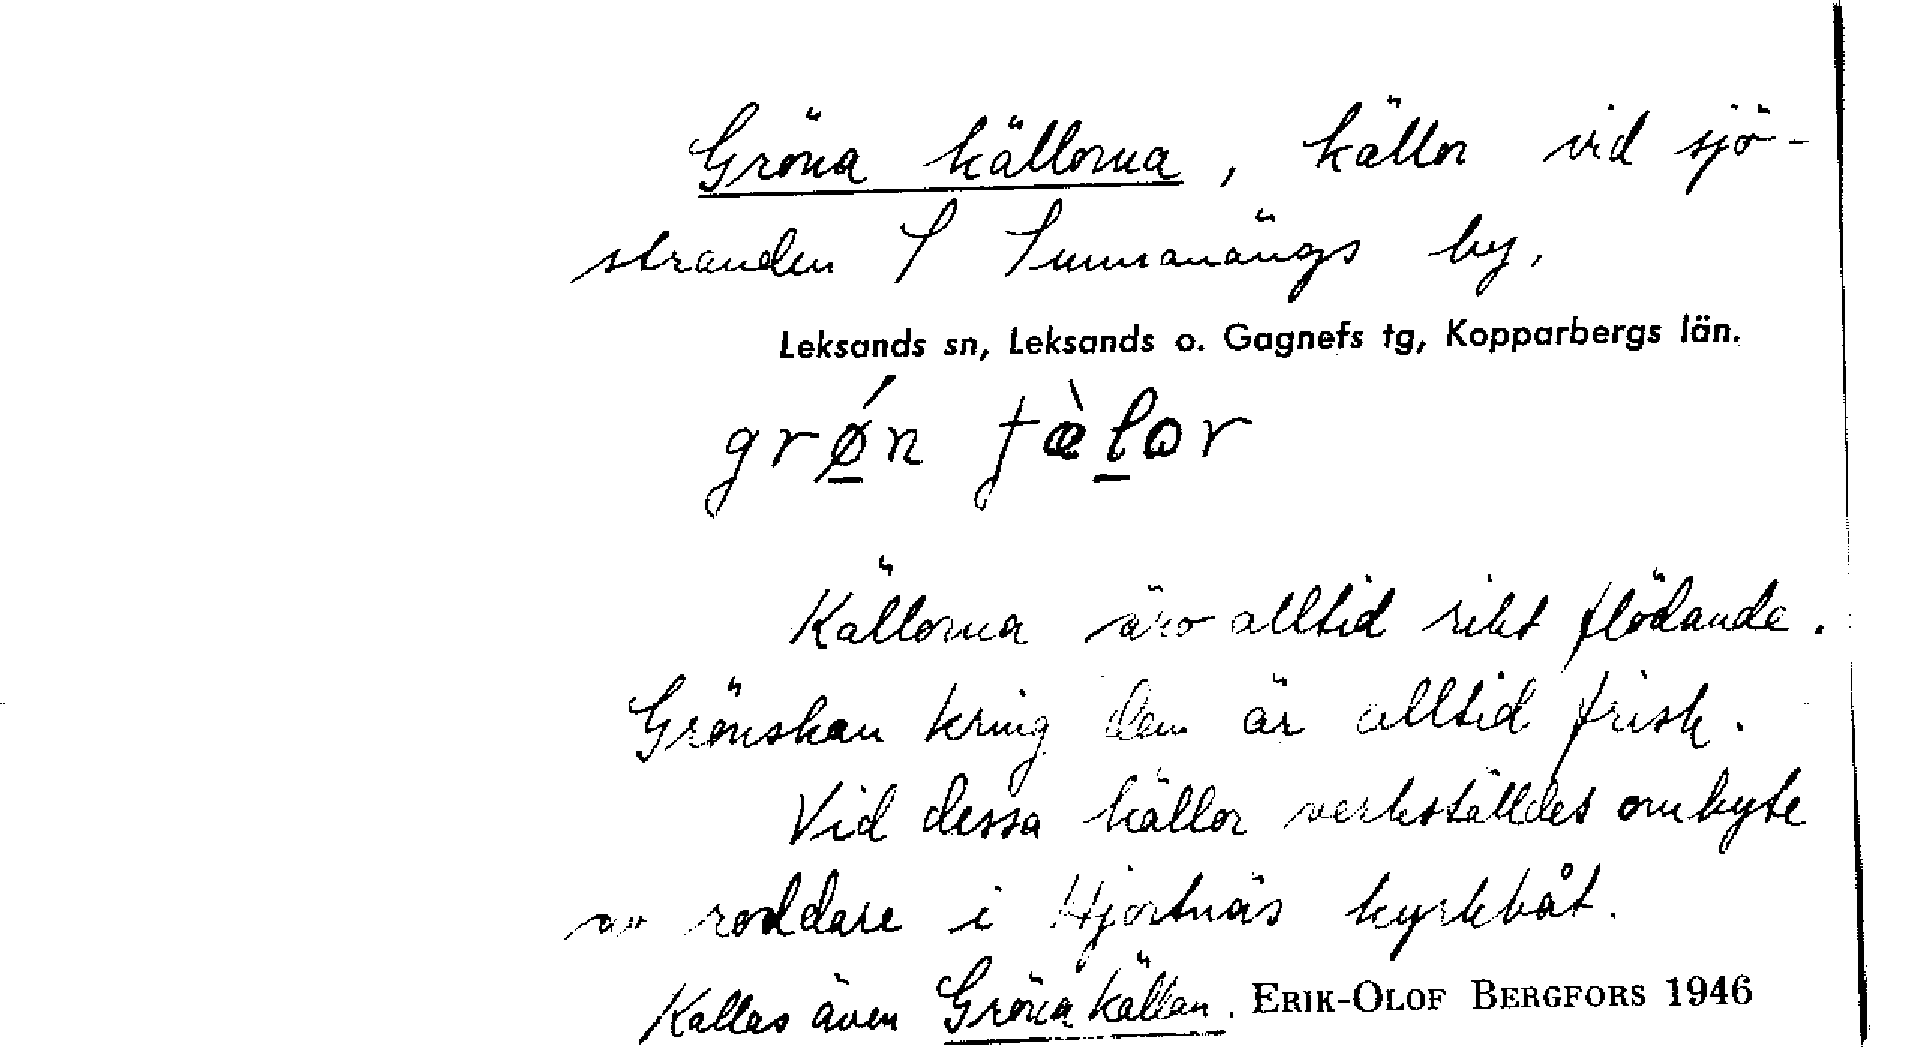 Gröna källorna, källor vid sjö-
stranden S Sunnanängs by,
Leksands sn, Leksands o. Gagnefs tg, Kopparbergs län.
grǿ̲n ʃæ̀l̲or
Källorna äro alltid rikt flödande.
Grönskan kring dem är alltid frisk.
Vid dessa källor verkställdes ombyte
av roddare i Hjortnäs kyrkbåt.
Kallas även Gröna källan. ERIK-OLOF BERGFORS 1946